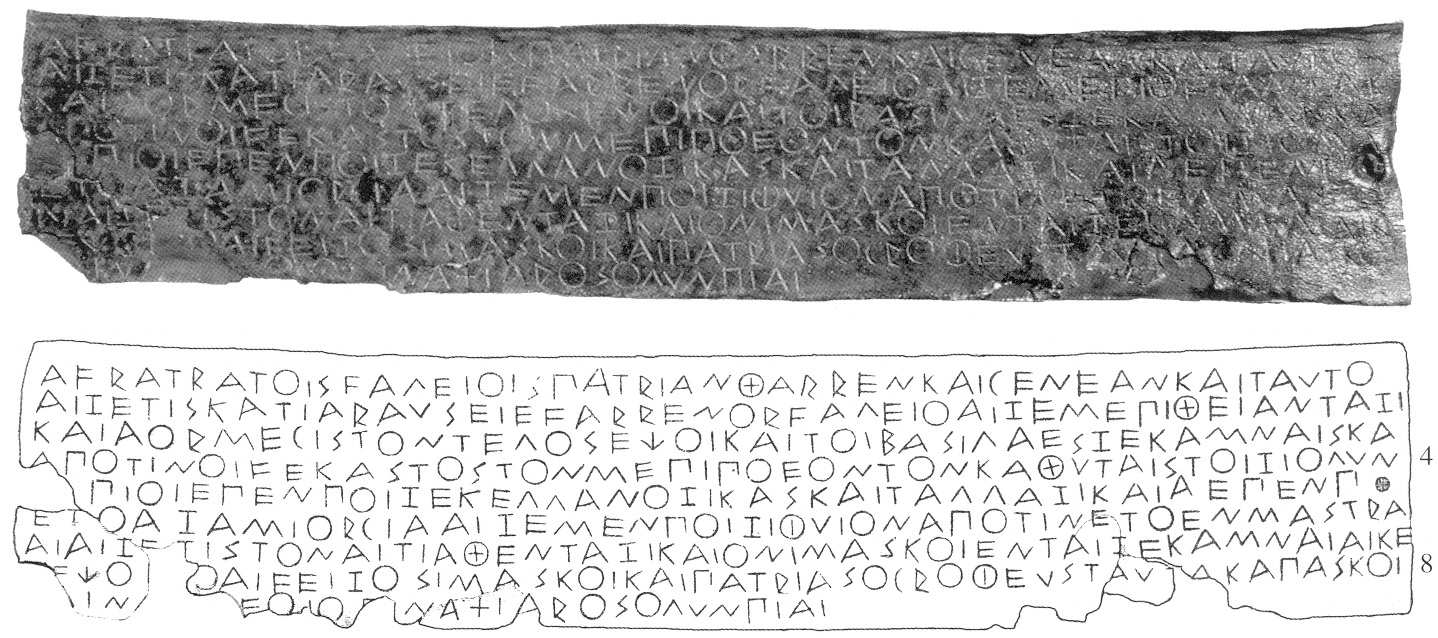 ΑϜΡΑΤΡΑΤΟΙΣϜΑΛΕΙΟΙΣΠΑΤΡΙΑΝΘΑΡΡΕΝΚΑΙΓΕΝΕΑΝΚΑΙΤΑΥΤΟ
ΑΙΖΕΤΙΣΚΑΤΙΑΡΑΥΣΕΙΕϜΑΡΡΕΝΟΡϜΑΛΕΙΟΑΙΖΕΜΕΠΙΘΕΙΑΝΤΑΖΙ
ΚΑΙΑΟΡΜΕΓΙΣΤΟΝΤΕΛΟΣΕΧΟΙΚΑΙΤΟΙΒΑΣΙΛΑΕΣΖΕΚΑΜΝΑΙΣΚΑ
ΑΠΟΤΙΝΟΙϜΕΚΑΣΤΟΣΤΟΝΜΕΠΙΠΟΕΟΝΤΟΝΚΑΘΥΤΑΙΣΤΟΙΖΙΟΛΥΝ
ΠΙΟΙΕΠΕΝΠΟΙΖΕΚΕΛΛΑΝΟΖΙΚΑΣΚΑΙΤΑΛΛΑΖΙΚΑΙΑΕΠΕΝΠ
ΕΤΟΑΖΑΜΙΟΡΓΙΑΑΙΖΕΜΕΝΠΟΙΖΙΦΥΙΟΝΑΠΟΤΙΝΕΤΟΕΝΜΑΣΤΡΑ
ΑΙΑΙΖΕΤΙΣΤΟΝΑΙΤΙΑΘΕΝΤΑΖΙΚΑΙΟΝΙΜΑΣΚΟΙΕΝΤΑΙΖΕΚΑΜΝΑΙΑΙΚΕ
ΕΧΟ ΑΙϜΕΙΖΟΣΙΜΑΣΚΟΙΚΑΙΠΑΤΡΙΑΣΟΓΡΟΦΕΥΣΤΑΥ ΑΚΑΠΑΣΚΟΙ
ΙΝ ΕΟΙΟΠ ΝΑΞΙΑΡΟΣΟΛΥΝΠΙΑΙ
4
8